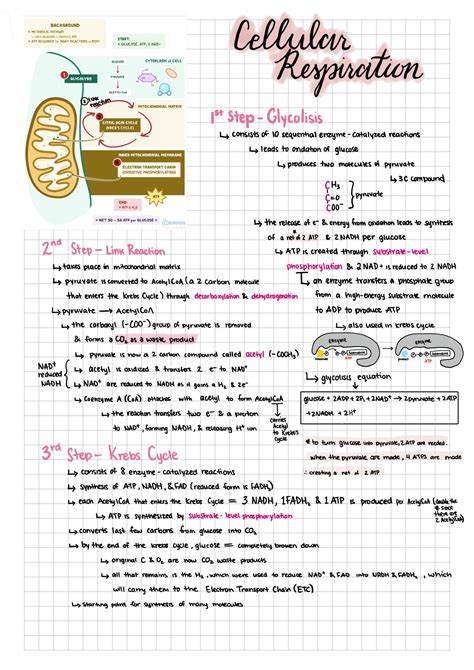 Cellular
Respiration
BACKGROUND
↳ METABOLIC PATHWAY
↳ ATP REQUIRED for MANY REACTIONS in BODY
START:
CYTOPLASM of CELL
GLUCOSE
1 GLYCOLYSIS
PYRUVATE
2 LINK
reaction
ACETYL-CoA
MITOCHONDRIAL MATRIX
CITRIC ACID CYCLE
(KREB'S CYCLE)
INNER MITOCHONDRIAL MEMBRANE
ELECTRON TRANSPORT CHAIN
(OXIDATIVE PHOSPHORYLATION)
END:
* NET 30 - 32 ATP per GLUCOSE *
1st Step - Glycolisis
↳ consists of 10 sequential enzyme-catalyzed reactions
↳ leads to oxidation of glucose
↳ produces two molecules of pyruvate
↳ 3C compound
CH3
C=O
COO-
pyruvate
↳ the release of e- & energy from oxidation leads to synthesis
of a net of 2 ATP & 2 NADH per glucose
↳ ATP is created through substrate-level
phosphorylation & 2 NAD+ is reduced to 2 NADH
↳ an enzyme transfers a phosphate group
from a high-energy substrate molecule
to ADP to produce ATP
↳ also used in krebs cycle
enzyme
enzyme
↳ glycolysis equation
glucose + 2ADP + 2Pi + 2NAD+ → 2pyruvate + 2ATP
+2NADH + 2H+
* to turn glucose into pyruvate, 2 ATP are needed.
when the pyruvate are made, 4 ATPs are made
∴ creating a net of 2 ATP
2nd Step - Link Reaction
↳ takes place in mitochondrial matrix
↳ pyruvate is converted to Acetyl CoA (a 2 carbon molecule
that enters the Krebs Cycle) through decarboxylation & dehydrogenation
↳ pyruvate → Acetyl CoA
↳ the carboxyl (-COO-) group of pyruvate is removed
& forms a CO2 as a waste product
↳ pyruvate is now a 2 carbon compound called acetyl (-COCH3)
NAD+
reduced
NADH
↳ acetyl is oxidized & transfers 2 e- to NAD+
↳ NAD+ are reduced to NADH as it gains a H+ & 2e-
↳ coenzyme A (CoA) attaches with acetyl to form Acetyl CoA
↳ the reaction transfers two e- & a proton
to NAD+, forming NADH, & releasing H+ ion
carries
Acetyl
to Krebs
Cycle
3rd Step - Krebs Cycle
↳ consists of 8 enzyme-catalyzed reactions
↳ synthesis of ATP, NADH, & FAD (reduced form is FADH2)
↳ each Acetyl CoA that enters the Krebs Cycle = 3 NADH, 1 FADH2 & 1 ATP is produced per Acetyl CoA (double the # since there are 2 Acetyl CoA)
↳ ATP is synthesized by substrate-level phosphorylation
↳ converts last few carbons from glucose into CO2
↳ by the end of the krebs cycle, glucose = completely broken down
↳ original C & O2 are now CO2 waste products
↳ all that remains is the H2, which were used to reduce NAD+ & FAD into NADH & FADH2, which
will carry them to the Electron Transport Chain (ETC)
↳ starting point for synthesis of many molecules